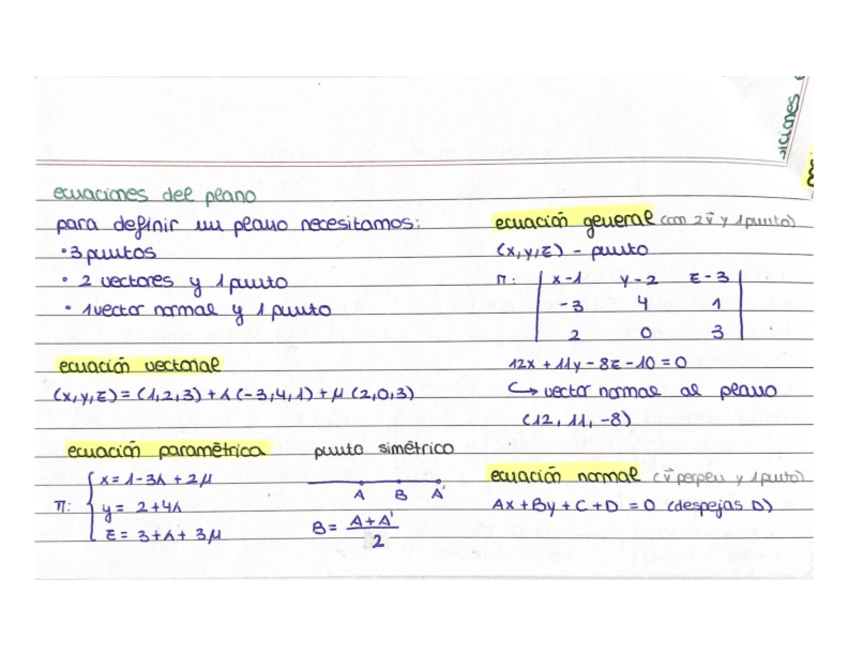 ecuaciones del plano
para definir un plano necesitamos:
· 3 puntos
· 2 vectores y 1 punto
· 1 vector normal y 1 punto
ecuación vectorial
(x,y,z) = (1,2,3) + λ(-3,4,1) + μ (2,0,3)
ecuación paramétrica
π: { x = 1-3λ + 2μ
y = 2+4λ
z = 3+λ+ 3μ
punto simétrico
A B A'
B = A + A' / 2
ecuación general (con 2 v⃗ y 1 punto)
(x,y,z) - punto
π: | x-1 y-2 z-3 |
| -3 4 1 |
| 2 0 3 |
12x + 11y - 8z - 10 = 0
↪ vector normal al plano
(12, 11, -8)
ecuación normal (v⃗ perpen y 1 punto)
Ax + By + C + D = 0 (despejas D)